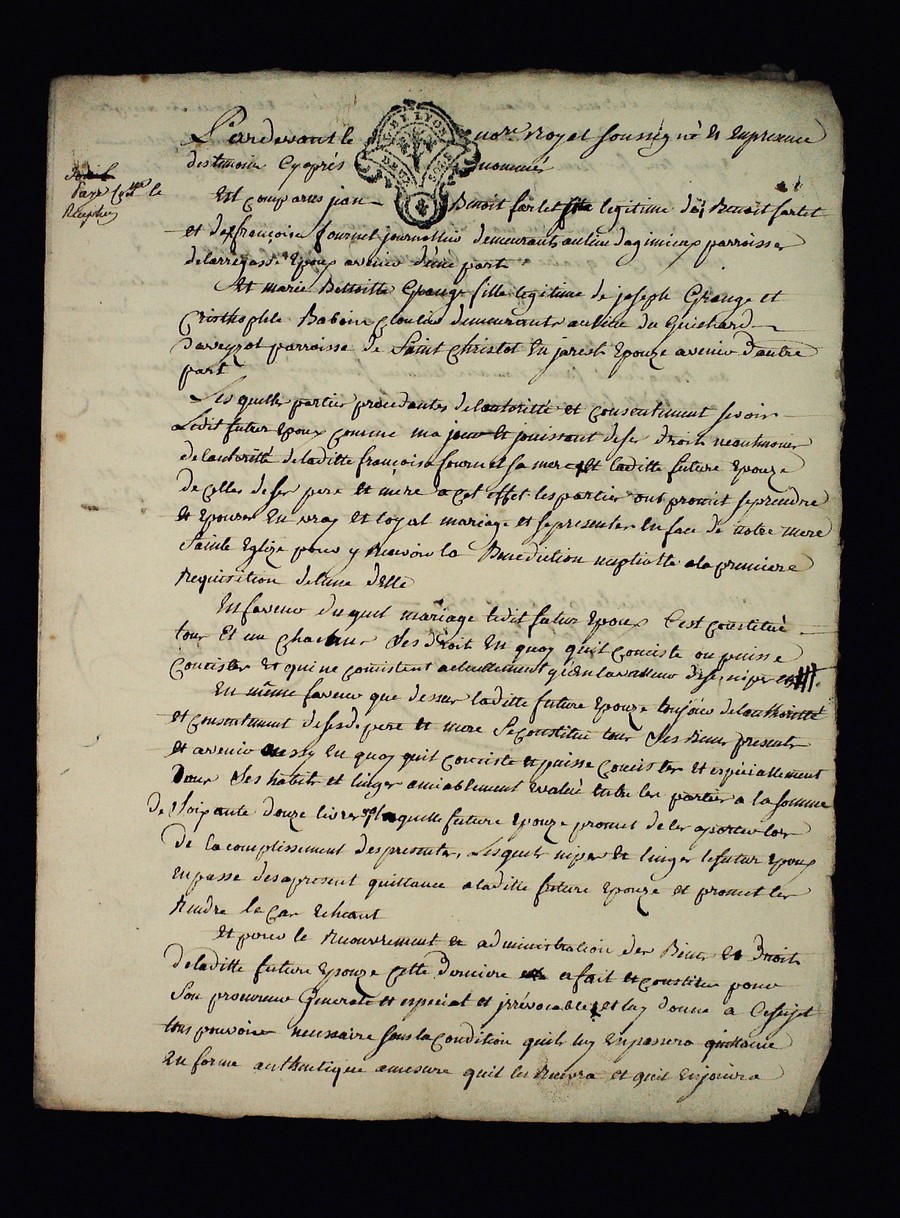 Pardevant le
GEN LYON
DEUX SOLS
notre Royal soussigné et en presence
des temoins cy apres
nommés
Payé
le
Est comparus jean
Benoit farlet fils legitime de Benoit farlet
et de françoise fournel journallier demeurant au lieu dagimieux parroisse
de larregasse Epoux avenir d'une part
Et marie Benoitte Grange fille legitime de joseph Grange et
Cristhophle Baboin demeurante au lieu du Guichard
daveyzot parroisse de Saint Christot En jarest Epouze avenir d'autre
part
Lesquelles partier procedantes de lautoritté et consentement scavoir
Ledit futur Epoux comme majeur et jouissant de ses droits neautmoins
de lautoritté de laditte françoise fournel sa mere et laditte future Epouze
de celles de ses pere et mere a cet effet les partier ont promit se prendre
et Epouser En vray et loyal mariage et se presenter En face de notre mere
Sainte Eglize pour y Recevoir la Benediction nuptialle a la premiere
Requisition de lune delle
En faveur du quel mariage ledit futur Epoux C'est constitué
tous Et un chacun Ses droit En quoy quil conciste ou puisse
Concister Et qui ne consistent actuellement qu'en la valleur de ses nipes
En même faveur que dessus laditte future Epouze toujour de lauthoritté
et consentement de sesd. pere et mere Se constitue tous Ses Biens presents
et avenir en quoy quil conciste et puisse concister et especiallement
Dans Ses habits et linges amiablement Evalué Entre les partier a la somme
De Soixante douze livres laquelle future Epouze promet de les aporter lors
De la complissement des presentes, Lesquels nipes et linges le futur Epoux
En passe des apresent quittance a laditte future Epouze et promet les
Rendre le cas Echeant
Et pour le Recouvrement et administration des Biens et Droits
De laditte future Epouze cette derniere a fait et constitue pour
Son procureur General et especial et irrévocable et luy donne a Ce sujet
tous pouvoirs necessaire sous la condition quil luy En passera quittance
En forme authentique amesure quil les Recevra et quil En jouira